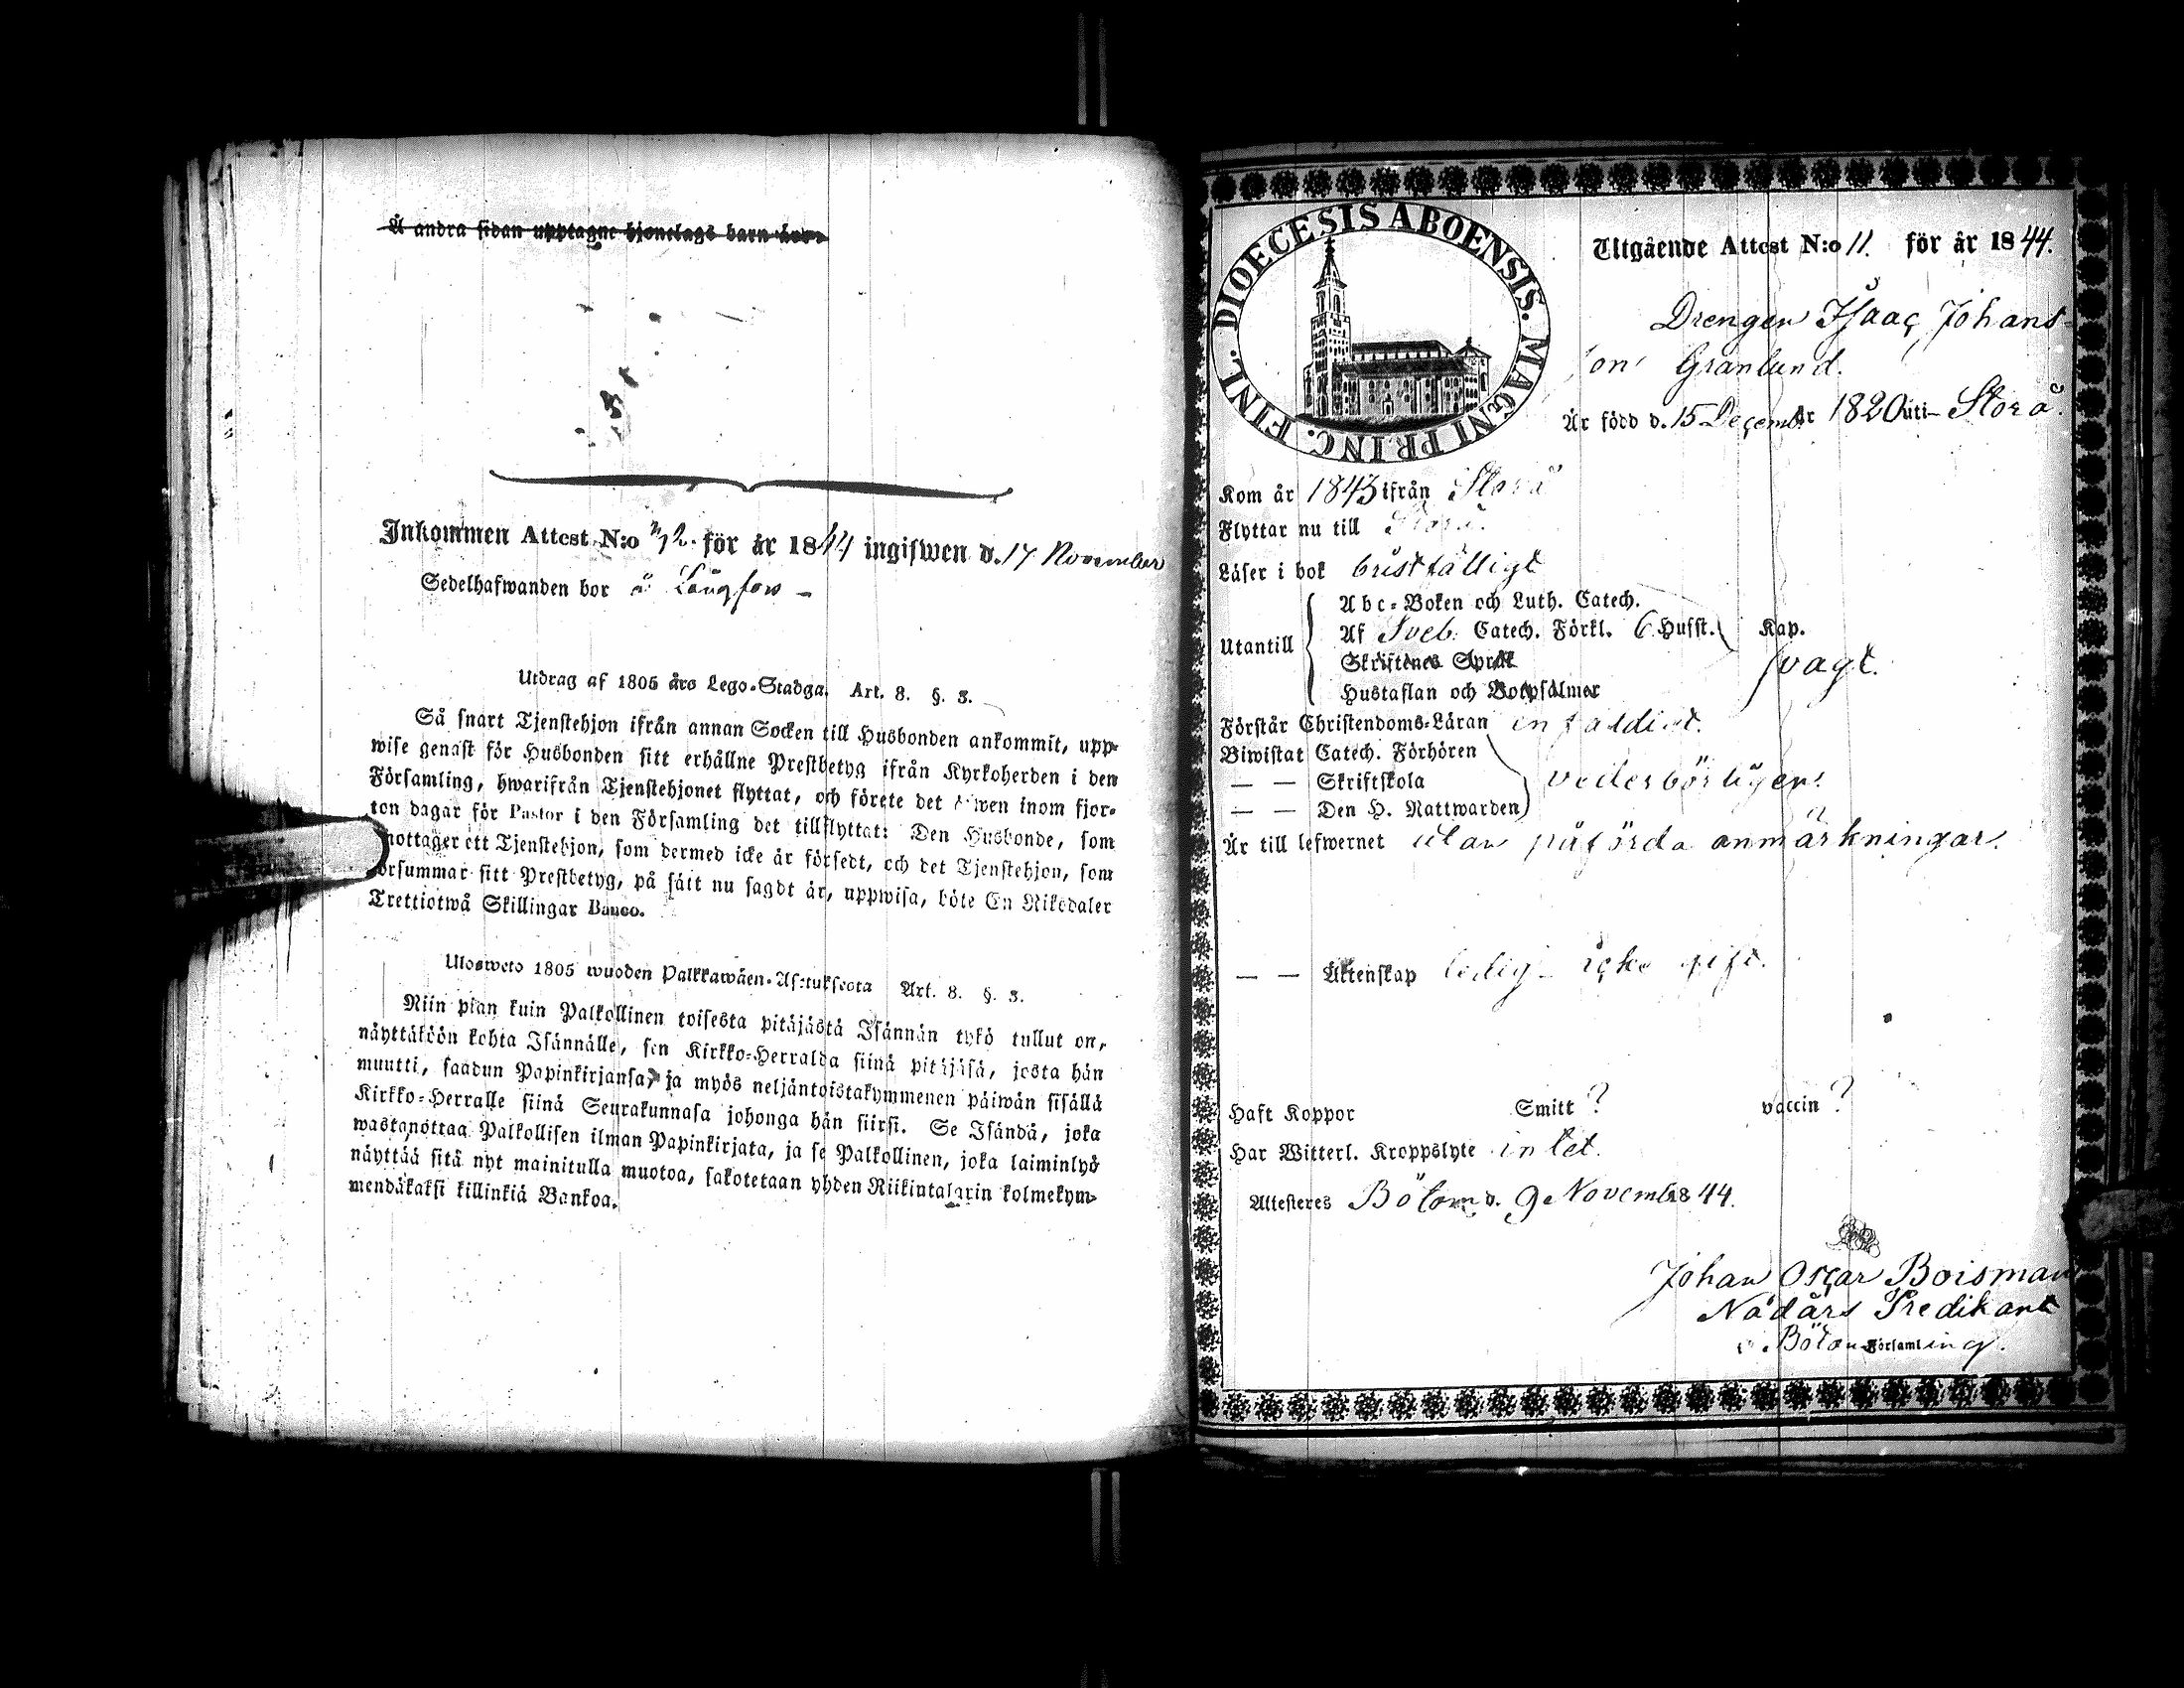 Å andra sidan upptagne hjonelags barn äro:
Inkommen Attest N:o 72. för år 1844 ingifwen d. 17 November
Sedelhafwanden bor å Långfors –
Utdrag af 1805 års Lego-Stadga. Art. 8. §. 3.
Så snart Tjenstehjon ifrån annan Socken till Husbonden ankommit, upp-
wise genast för Husbonden sitt erhållne Prestbetyg ifrån Kyrkoherden i den
Församling, hwarifrån Tjenstehjonet flyttat, och förete det äfwen inom fjor-
ton dagar för Pastor i den Församling det tillflyttat: Den Husbonde, som
mottager ett Tjenstehjon, som dermed icke är försedt, och det Tjenstehjon, som
försummar sitt Prestbetyg, på sätt nu sagdt är, uppwisa, böte En Riksdaler
Trettiotwå Skillingar Banco.
Ulosweto 1805 wuoden Palkkawäen-Asetuksesta Art. 8. §. 3.
Niin pian kuin Palkollinen toisesta pitäjästä Isännän tykö tullut on,
näyttäköön kohta Isännälle, sen Kirkko-Herralda siinä pitäjäsä, josta hän
muutti, saadun Papinkirjansa, ja myös neljäntoistakymmenen päiwän sisällä
Kirkko-Herralle siinä Seurakunnasa johonga hän siirsi. Se Isändä, joka
wastanottaa Palkollisen ilman Papinkirjata, ja se Palkollinen, joka laiminlyö
näyttää sitä nyt mainitulla muotoa, sakotetaan yhden Riikintalarin kolmekym-
mendäkaksi killinkiä Bankoa.
DIOECESIS ABOENSIS. MAGNI PRINC. FINL.
Utgående Attest N:o 11. för år 1844.
Drengen Isaac Johans-
son Granlund.
Är född d. 15 Decemb. år 1820 uti Storå.
Kom år 1843 ifrån Storå
Flyttar nu till Storå.
Läser i bok bristfälligt
Utantill
Abc-Boken och Luth. Catech.
Af Sveb. Catech. Förkl. 6 Hufst. Kap.
Skriftenes Språk svagt.
Hustaflan och Botpsalmer
Förstår Christendoms-Läran enfaldigt.
Biwistat Catech. Förhören
— — Skriftskola vederbörligen.
— — Den H. Nattwarden
Är till lefwernet utan påförda anmärkningar.
— — Äktenskap ledig icke gift.
Haft Koppor Smitt ? vaccin ?
Har Witterl. Kroppslyte intet.
Attesteres Bötom d. 9 Novemb. 1844.
Johan Oscar Boisman
Nådårs Predikant
i Bötom Församling.